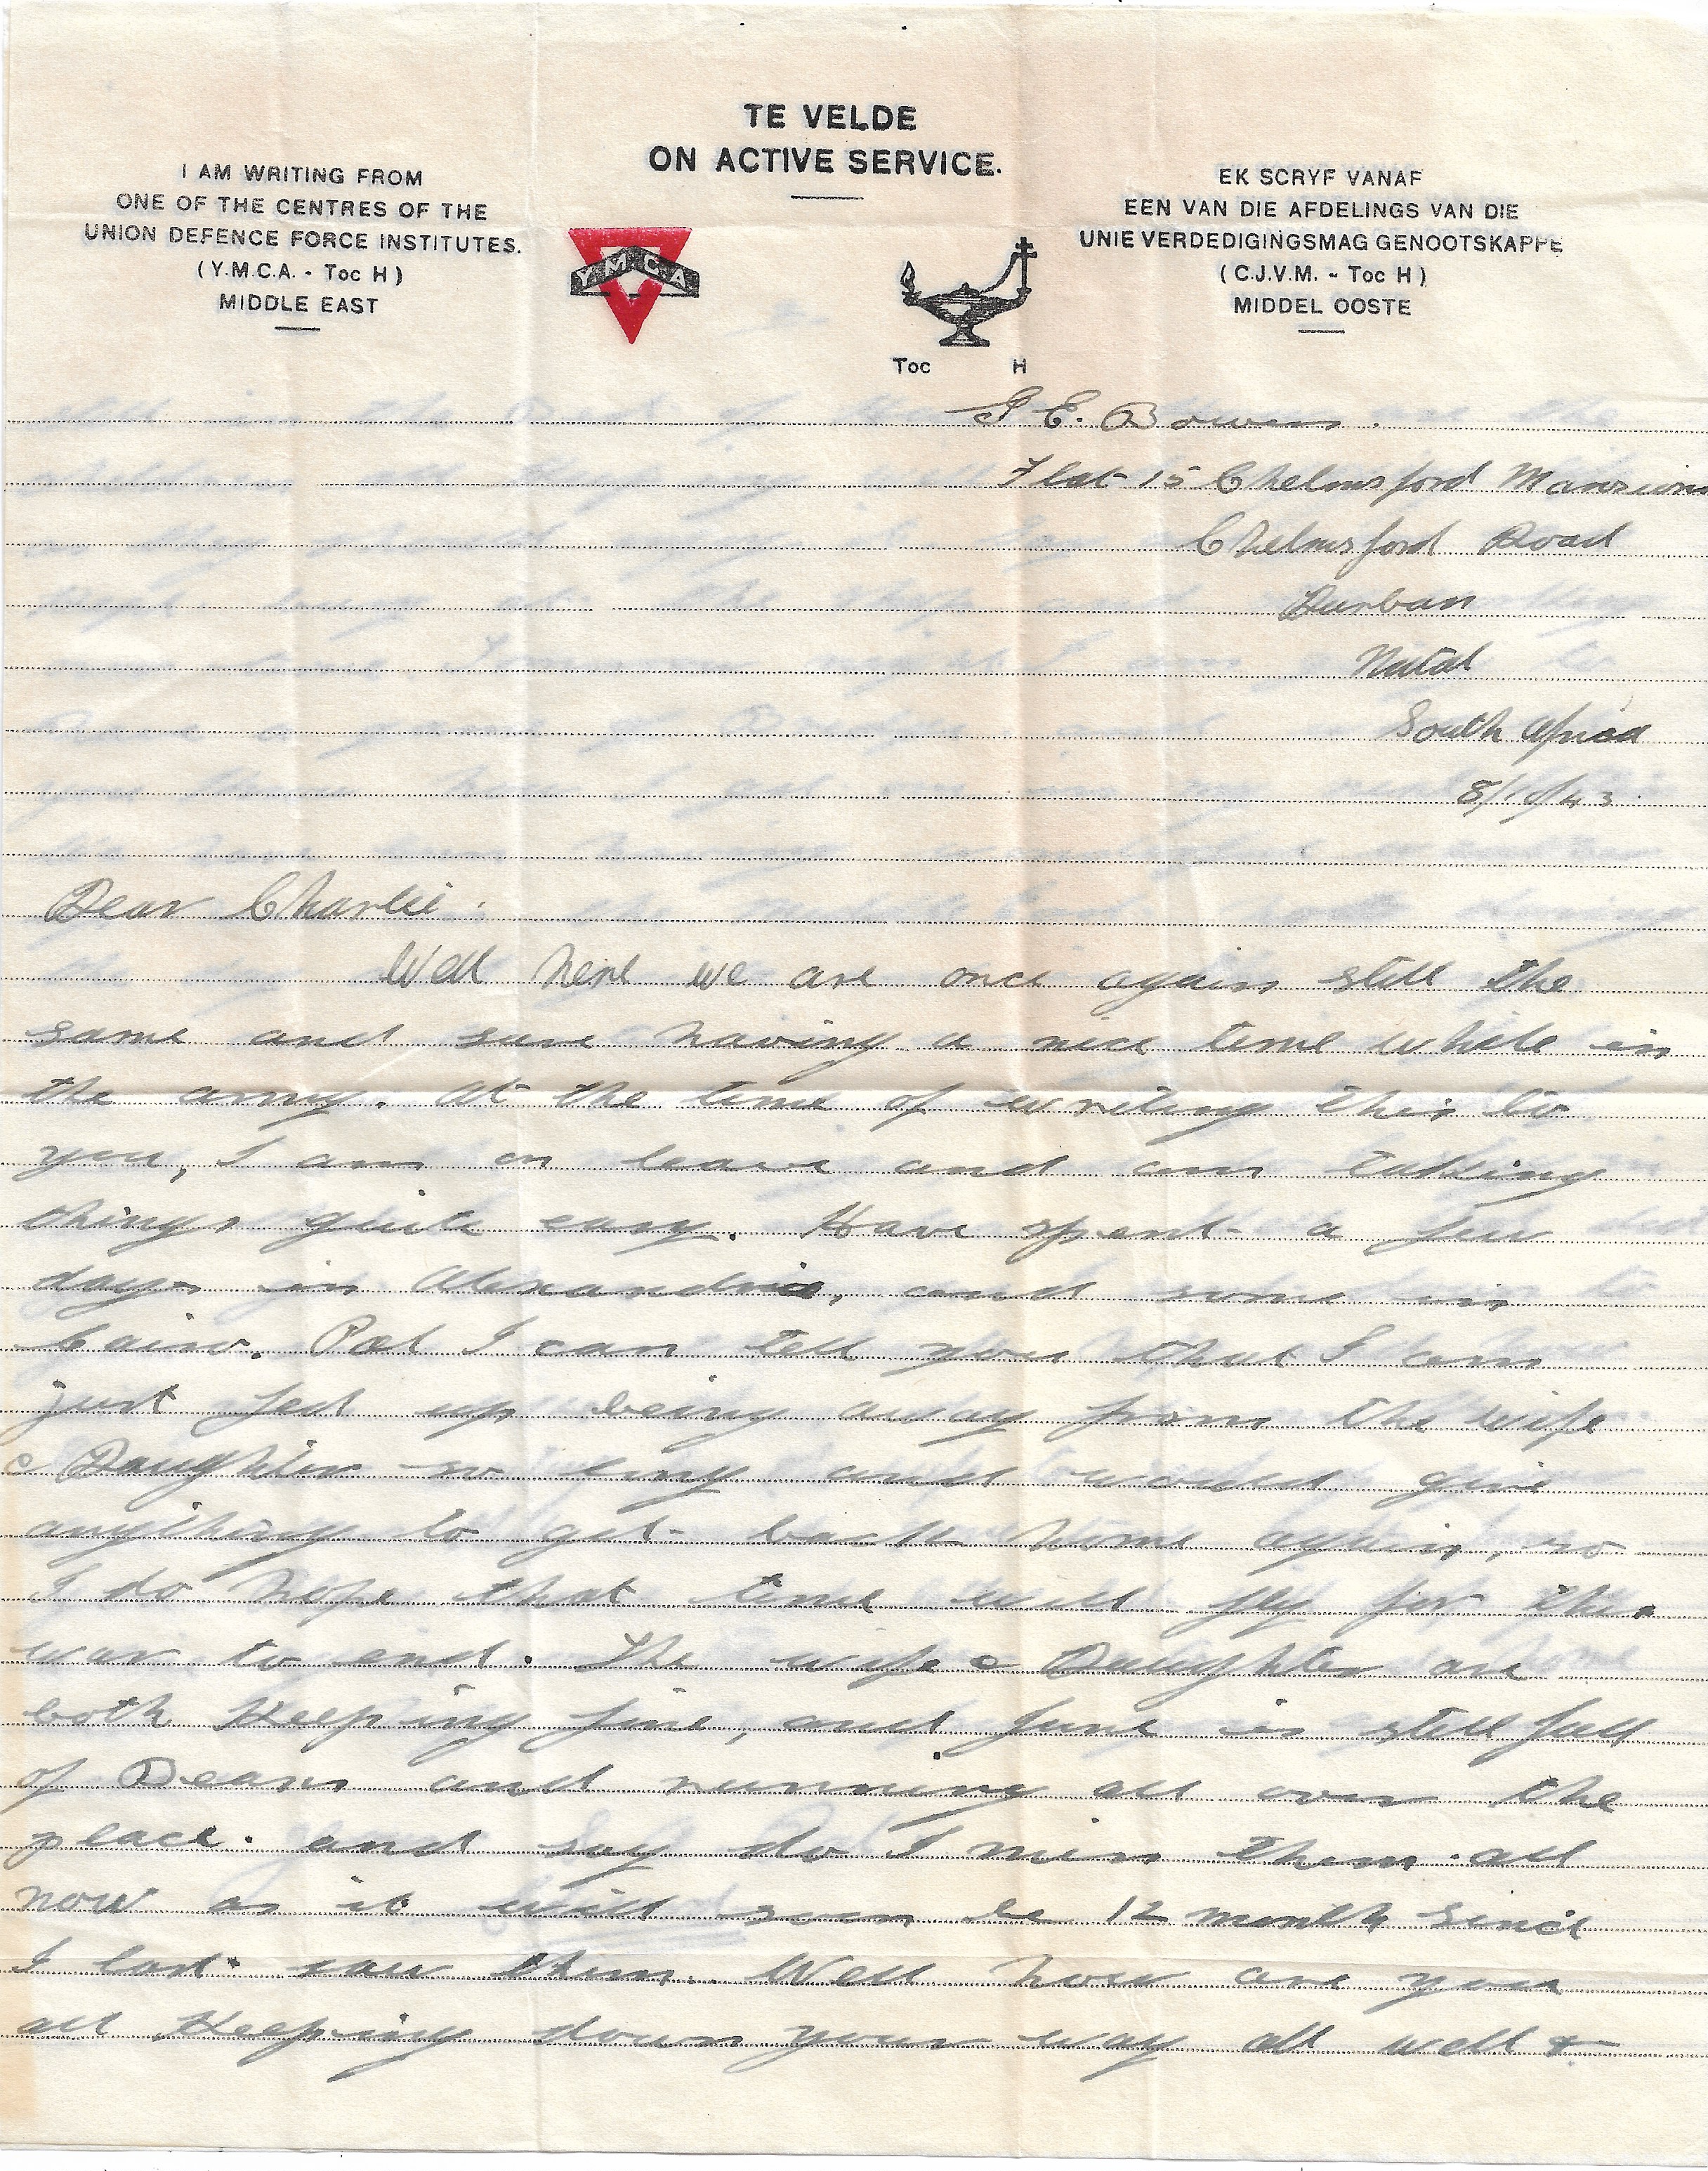 TE VELDE
ON ACTIVE SERVICE.
I AM WRITING FROM
ONE OF THE CENTRES OF THE
UNION DEFENCE FORCE INSTITUTES.
(Y.M.C.A. - Toc H)
MIDDLE EAST
Y.M.C.A
Toc H
EK SCRYF VANAF
EEN VAN DIE AFDELINGS VAN DIE
UNIE VERDEDIGINGSMAG GENOOTSKAPPE
(C.J.V.M. - Toc H)
MIDDEL OOSTE
E. Bowen.
Flat 15 Chelmsford Mansions
Chelmsford Road
Durban
Natal
South Africa
Dear Charlie.
Well here we are once again still the
same and sure having a nice time while in
the army. At the time of writing this to
you, I am on leave and am taking
things quite easy. Have spent a few
days in Alexandria, and some in
Cairo. Pal I can tell you that I am
just fed up being away from the wife
& Daughter so long and would give
anything to get back home again, so
I do hope that time will fly for the
war to end. The wife & Daughter are
both keeping fine, and June is still full
of Beans and running all over the
place. and say do I miss them all
now as it will soon be 12 month since
I last saw them. Well how are you
all keeping down your way all well &